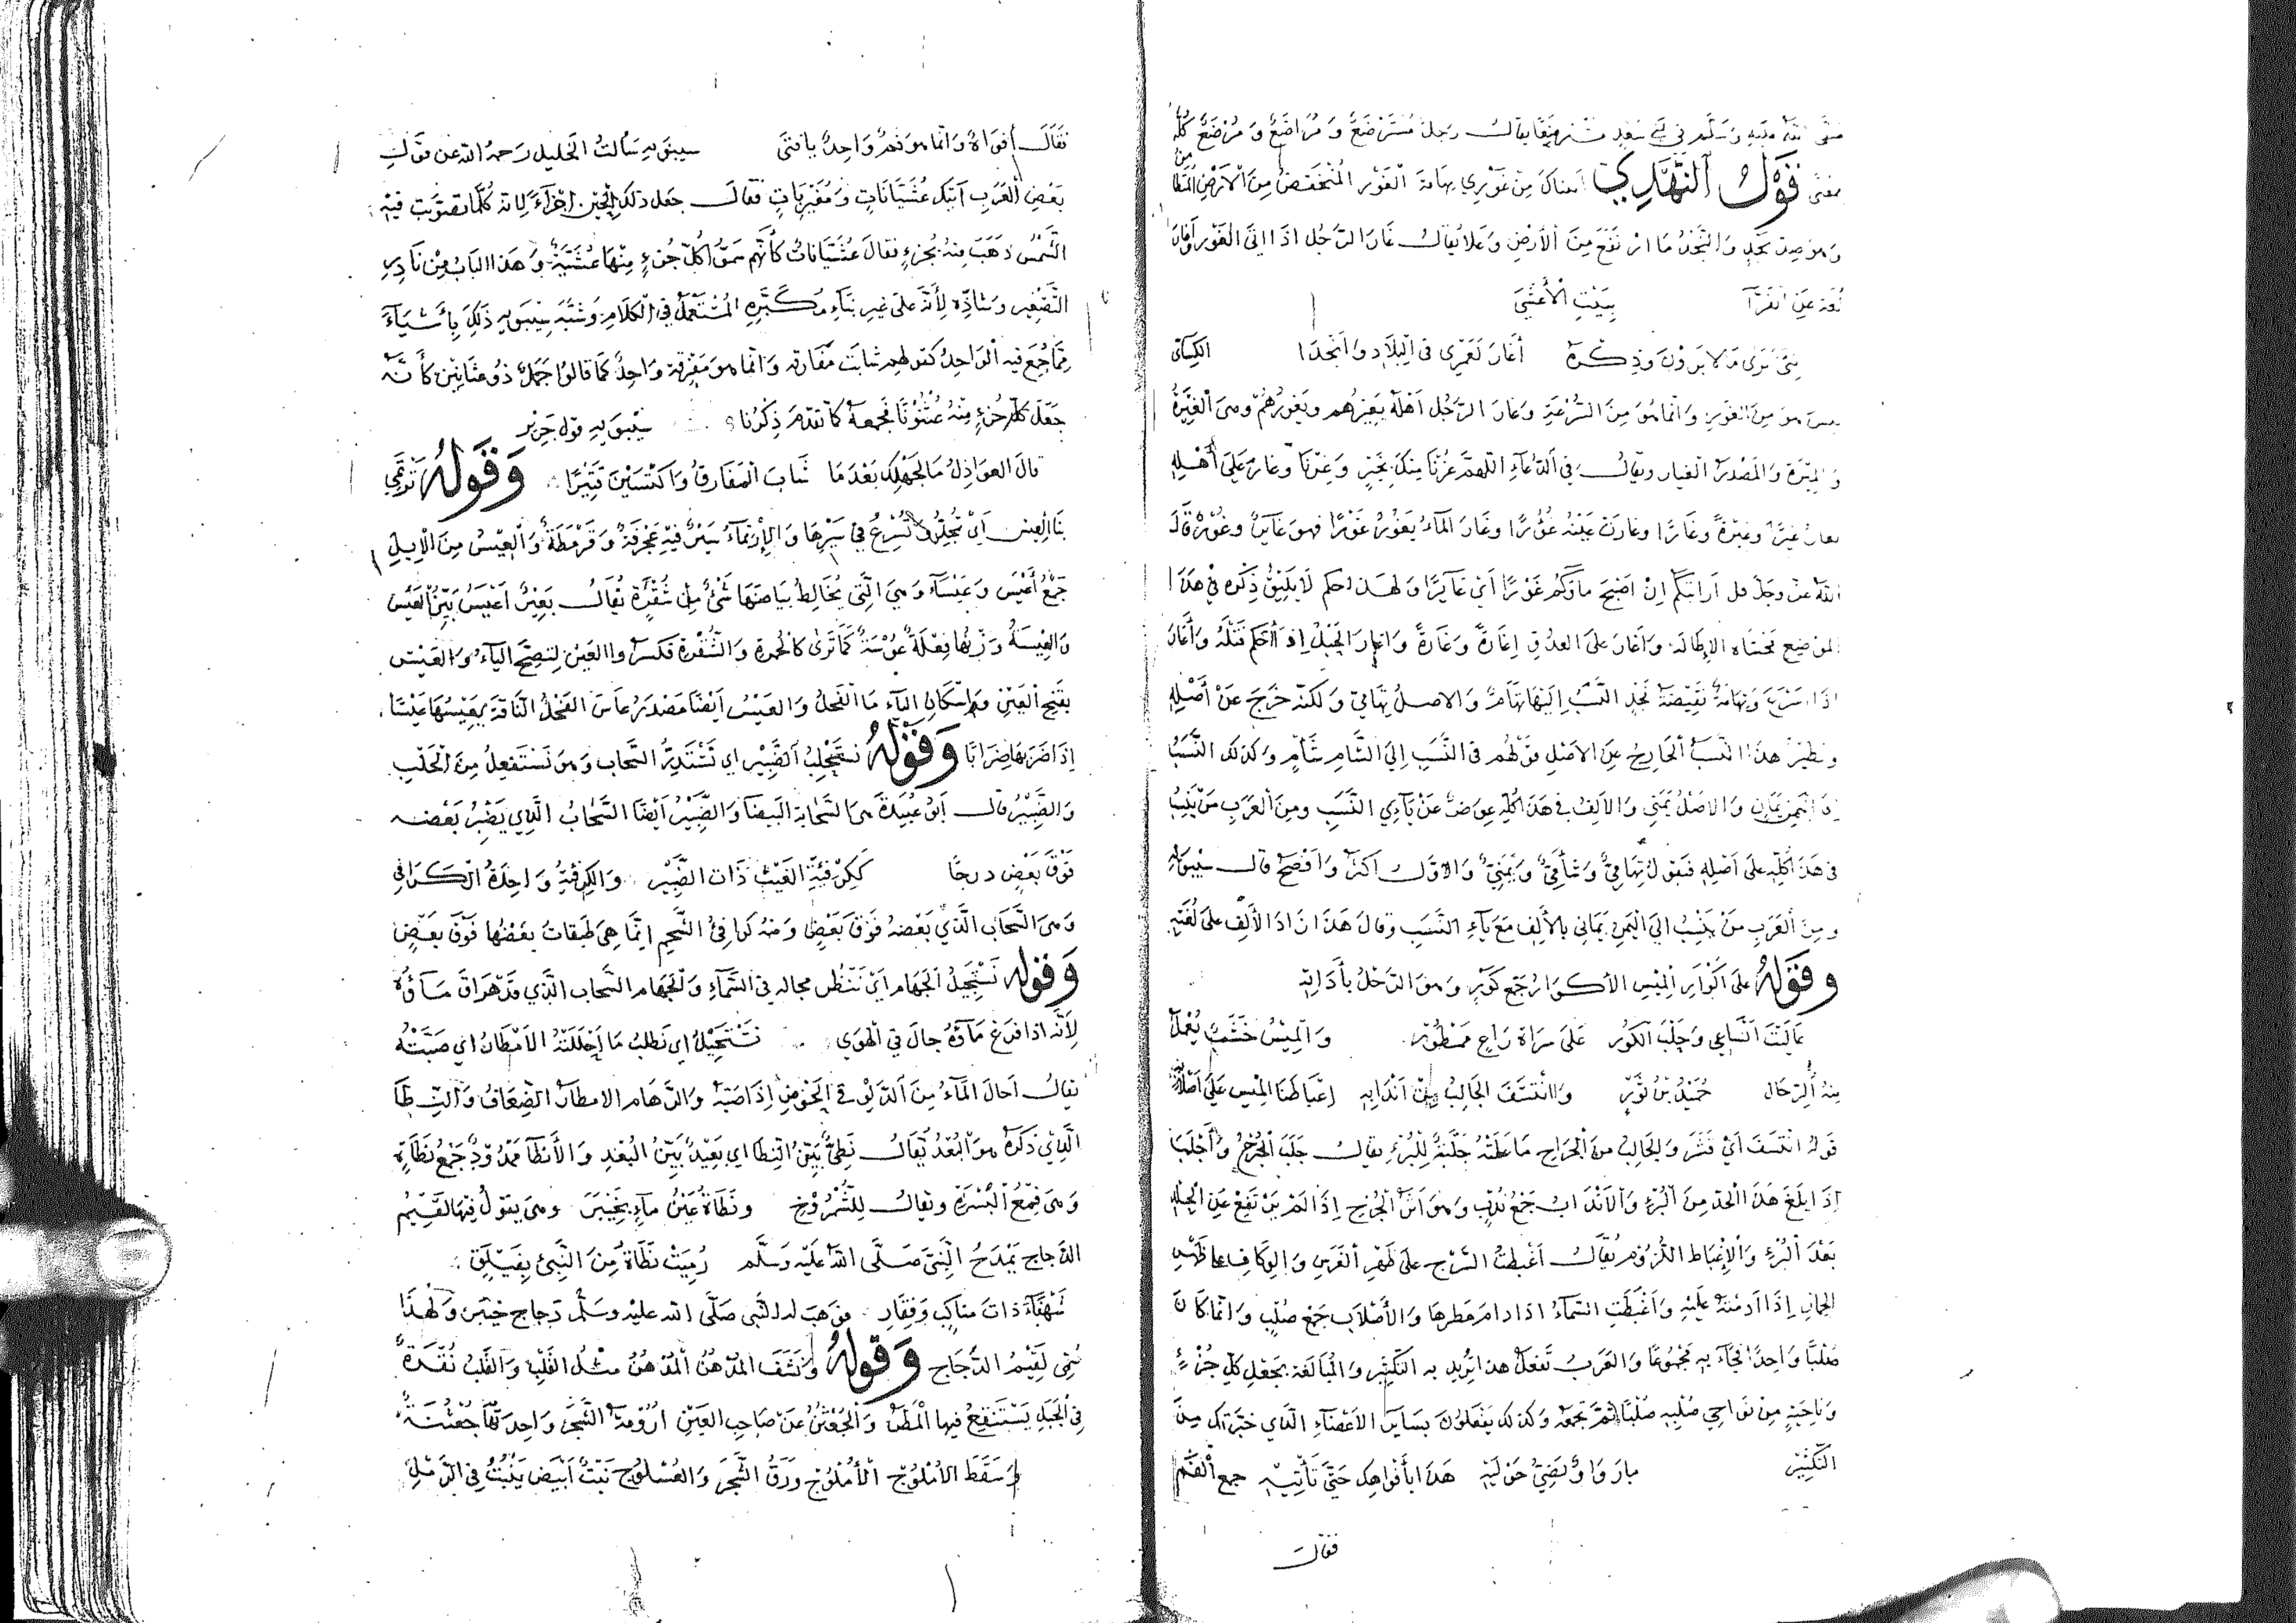 صلى الله عليه وسلم في بني سعد مسترضعا يقال رجل مسترضع و مراضع و مرضع كله من
معنى قول النهدي أتيناك من غوري تهامة الغور المنخفض من الأرض المطا
وهو ضد نجد والنجد ما ارتفع من الأرض وعلا يقال غار الرجل اذا اتى الغور وأغار
لغة عن الفرآ بيت الأعشى
نبي يرى ما لا يرون وذكره أغار لعمري في البلاد وانجدا الكسائي
ليس هو من الغور وانما هو من السرعة وغار الرجل اهله يغيرهم ويغورهم وهي الغيرة
والميرة والمصدر الغيار ويقال في الدعاء اللهم غرنا منك بخير وغرنا وغار على أهله
يغار غيرا وغيرة وغارا وغارت عينه غؤرا وغار الماء يغور غورا فهو غاير وغور قال
الله عز وجل قل ارايتكم ان اصبح ماؤكم غورا أي غايرا ولهذا حكم لا يليق ذكره في هذا
الموضع مخشاه الإطالة وأغار على العدو إغارة وغارة وأغار الحبل إذا أحكم فتله وأغار
اذا اسرع وتهامة نقيضة نجد النسب اليها تهام والاصل تهامي ولكنه خرج عن أصله
ونظير هذا النسب الخارج عن الاصل قولهم في النسب إلى الشام شآم وكذلك النسب
إلى اليمن يمان والاصل يمني والالف في هذا كله عوض عن ياءي النسب ومن العرب من ينسب
في هذا كله على أصله فيقول تهامي وشأمي ويمني والاول اكثر وافصح قال سيبويه
ومن العرب من ينسب الى اليمن يماني بالألف مع ياء النسب وقال هذا زاد الألف على لغته
وقوله على أكوار الميس الأكوار جمع كور وهو الرحل بأداته
عاليت انساعي وجلب الكور على سراة رايح ممطور والميس خشب يعمل
منه الرحال حميد بن ثور وانتسف الجالب من اندابه إغباطنا الميس على أصلابه
قوله انتسف أي قشر والجالب من الجراح ما علته جلبة للبرء يقال جلب الجرح وأجلب
إذا بلغ هذا الحد من البرء والأنداب جمع ندب وهو أثر الجرح إذا لم يرتفع عن الجلد
بعد البرء والإغباط اللزوم يقال أغبطت السرج على ظهر الفرس والوكاف على ظهر
الحمار إذا أدمته عليه وأغبطت السماء اذا دام مطرها والأصلاب جمع صلب وانما كان
صلبا واحدا فجاء به مجموعا والعرب تفعل هذا تريد به التكثير والمبالغة بجعل كل جزء
وناحية من نواحي صلبه صلبا ثم تجمعه وكذلك يفعلون بساير الاعضاء الذي خبرتك من
التكثير ماء رواء ونصي حوليه هذا بأفواهك حتى تأتيه جمع الفم
فقال
فقال أفواه وانما هو فم واحد يا فتى سيبويه سألت الخليل رحمه الله عن قول
بعض العرب آتيك عشيانات ومغيربات فقال جعل ذلك الحين أجزاء لانه كلما تصوبت فيه
الشمس ذهب منه جزء فقال عشيانات كأنهم سموا كل جزء منها عشية وهذا الباب من نادر
التصغير وشاذه لأنه على غير بناء مكبره المستعمل في الكلام وشبه سيبويه ذلك بأشياء
مما جمع فيه الواحد كقولهم شابت مفارقه وانما هو مفرق واحد كما قالوا جمل ذو عثانين كأنه
جعل كل جزء منه عثنونا فجمعه كما تقدم ذكرنا سيبويه قول جرير
قال العواذل ما لجهلك بعدما شاب المفارق واكتسين قتيرا وقوله ترتمي
بنا العيس أي تجلو تسرع في سيرها والإرتماء سير فيه عجرفة وقرمطة والعيس من الإبل
جمع أعيس وعيساء وهي التي يخالط بياضها شيء من شقرة يقال بعير اعيس بين العيس
والعيسة وزنها فعلة عوسة كما ترى كالحمرة والشقرة فكسروا العين لتصح الياء والعيس
بفتح العين وإسكان الياء ماء الفحل والعيس ايضا مصدر عاس الفحل الناقة يعيسها عيسا
إذا ضربها ضرابا وقوله نستحلب الصبير اي نستدر السحاب وهو نستفعل من الحلب
والصبير قال أبو عبيدة هي السحابة البيضا والصبير أيضا السحاب الذي يصبر بعضه
فوق بعض درجا ككرفئة الغيث ذات الصبير والكرفئة واحدة الكرافئ
وهي السحاب الذي بعضه فوق بعض ومنه كرافئ الشحم انما هي طبقات بعضها فوق بعض
وقوله نستجيل الجهام اي ننظر مجاله في السماء والجهام السحاب الذي قد هراق ماؤه
لأنه اذا فرغ ماؤه جال في الهوي نستحيل اي نطلب ما أحلته الأمطار اي صبته
يقال احال الماء من الدلو في الحوض إذا صبه والرهام الامطار الضعاف والنطا
الذي ذكره هو البعد يقال نطي بين النطا اي بعيد بين البعد والأنطا ممدود جمع نطاة
وهي قمع البسرة ويقال للشمروخ ونطاة عين ماء بخيبر وهي يقول فيها لقيم
الدجاج يمدح النبي صلى الله عليه وسلم رميت نطاة من النبي بفيلق
شهباء ذات مناكب وفقار فوهب له النبي صلى الله عليه وسلم دجاج خيبر ولهذا
سمي لقيم الدجاج وقوله ونشف المدهن المدهن مثل القلب والقلب نقرة
في الجبل يستنقع فيها المطر والجعثن عن صاحب العين ارومة الشجر واحدتها جعثنة
وسقط الاملوج الأملوج ورق الشجر والعسلوج نبت ابيض ينبت في الرمل